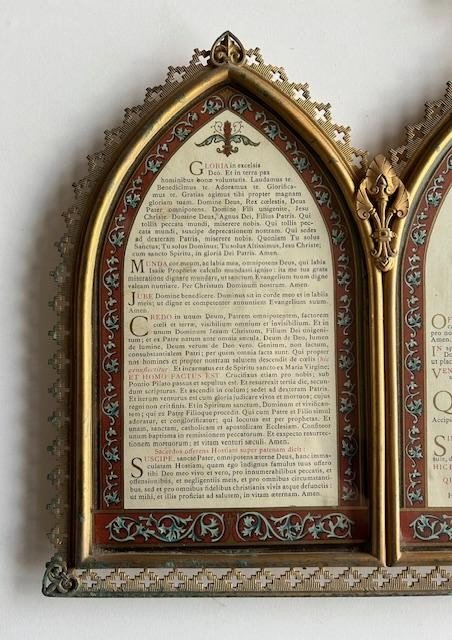 GLORIA in excelsis
Deo. Et in terra pax
hominibus bonæ voluntatis. Laudamus te.
Benedicimus te. Adoramus te. Glorifica-
mus te. Gratias agimus tibi propter magnam
gloriam tuam. Domine Deus, Rex cælestis, Deus
Pater omnipotens. Domine Fili unigenite, Jesu
Christe. Domine Deus, Agnus Dei, Filius Patris. Qui
tollis peccata mundi, miserere nobis. Qui tollis pec-
cata mundi, suscipe deprecationem nostram. Qui sedes
ad dexteram Patris, miserere nobis. Quoniam Tu solus
Sanctus; Tu solus Dominus; Tu solus Altissimus, Jesu Christe;
cum sancto Spiritu, in gloria Dei Patris. Amen.
MUNDA cor meum, ac labia mea, omnipotens Deus, qui labia
Isaiæ Prophetæ calculo mundasti ignito: ita me tua grata
miseratione dignare mundare, ut sanctum Evangelium tuum digne
valeam nuntiare. Per Christum Dominum nostrum. Amen.
JUBE Domine benedicere. Dominus sit in corde meo et in labiis
meis; ut digne et competenter annuntiem Evangelium suum.
Amen.
CREDO in unum Deum, Patrem omnipotentem, factorem
cœli et terræ, visibilium omnium et invisibilium. Et in
unum Dominum Jesum Christum, Filium Dei unigeni-
tum; et ex Patre natum ante omnia sæcula. Deum de Deo, lumen
de lumine, Deum verum de Deo vero. Genitum, non factum,
consubstantialem Patri; per quem omnia facta sunt. Qui propter
nos homines et propter nostram salutem descendit de cœlis (hic
genuflectitur. Et incarnatus est de Spiritu sancto ex Maria Virgine;
ET HOMO FACTUS EST. Crucifixus etiam pro nobis; sub
Pontio Pilato passus et sepultus est. Et resurrexit tertia die, secun-
dum scripturas. Et ascendit in cœlum; sedet ad dexteram Patris.
Et iterum venturus est cum gloria judicare vivos et mortuos; cujus
regni non erit finis. Et in Spiritum sanctum, Dominum et vivifican-
tem; qui ex Patre Filioque procedit. Qui cum Patre et Filio simul
adoratur, et conglorificatur; qui locutus est per prophetas. Et
unam, sanctam, catholicam et apostolicam Ecclesiam. Confiteor
unum baptisma in remissionem peccatorum. Et expecto resurrec-
tionem mortuorum; et vitam venturi sæculi. Amen.
Sacerdos offerens Hostiam super patenam dicit:
SUSCIPE, sancte Pater, omnipotens æterne Deus, hanc imma-
culatam Hostiam, quam ego indignus famulus tuus offero
tibi Deo meo vivo et vero, pro innumerabilibus peccatis, et
offensionibus, et negligentiis meis, et pro omnibus circumstanti-
bus, sed et pro omnibus fidelibus christianis vivis atque defunctis:
ut mihi, et illis proficiat ad salutem, in vitam æternam. Amen.